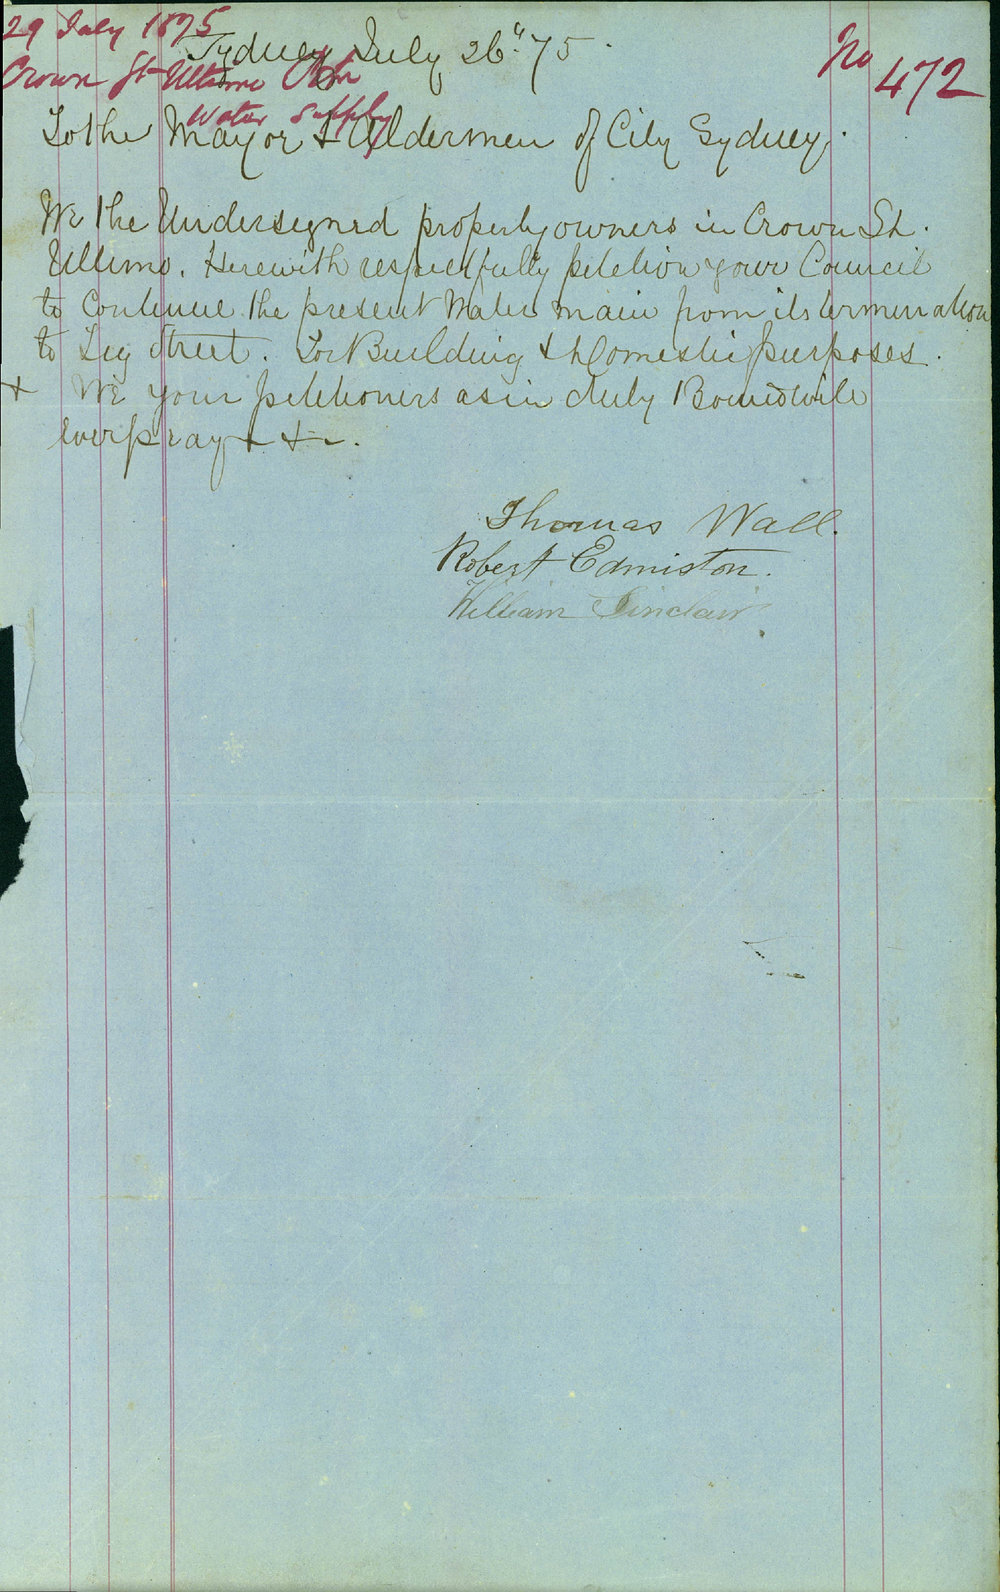 29 July 1875
Crown St Ultimo
Water Supply
No 472
Sydney July 26" 75.
To the Mayor & Aldermen of City Sydney.
We the Undersigned property owners in Crown St.
Ultimo. Herewith respectfully petition your Council
to Continue the present Water main from its termination
to Fig Street. For Building & Domestic purposes.
& We your petitioners as in duty Bound will
ever pray & &c.
Thomas Wall.
Robert Edmiston.
William Sinclair